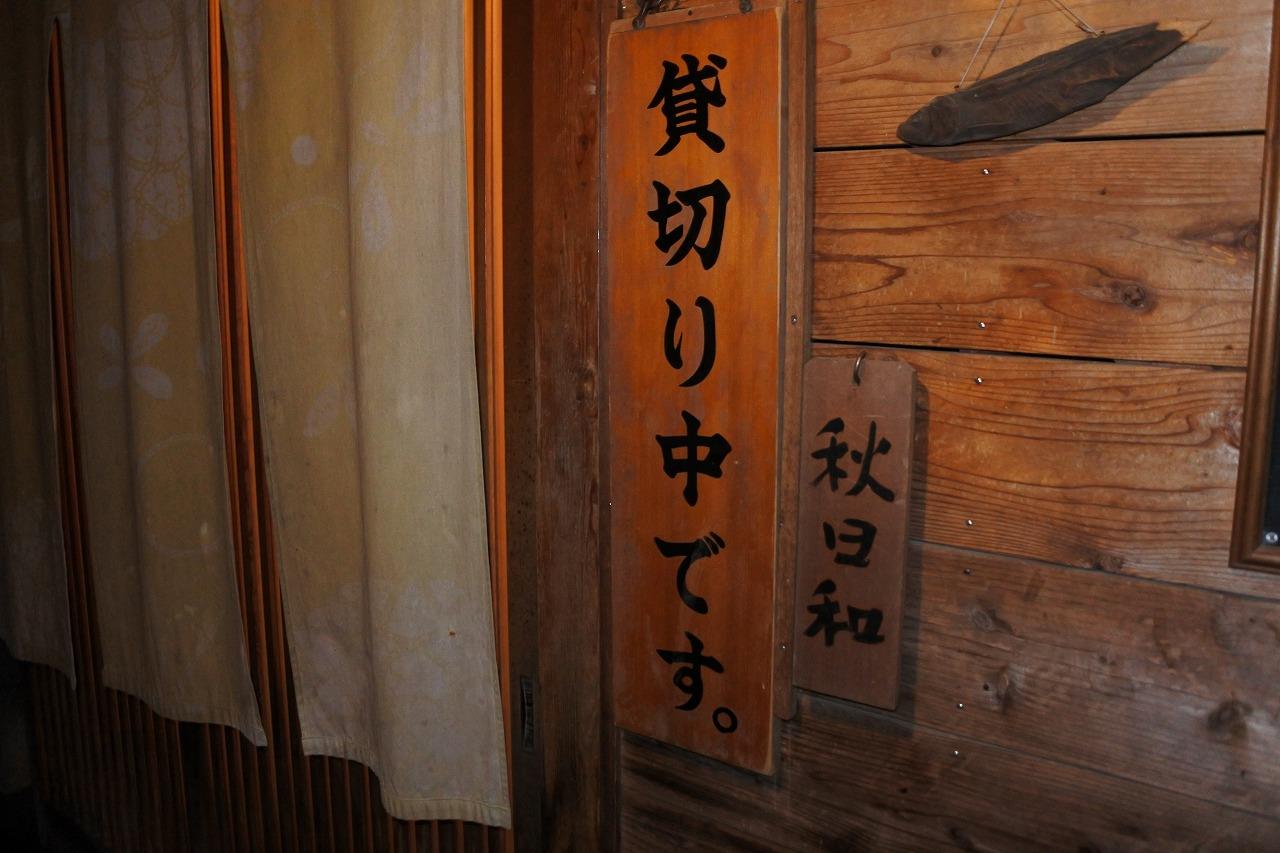 貸切り中です。
秋日和